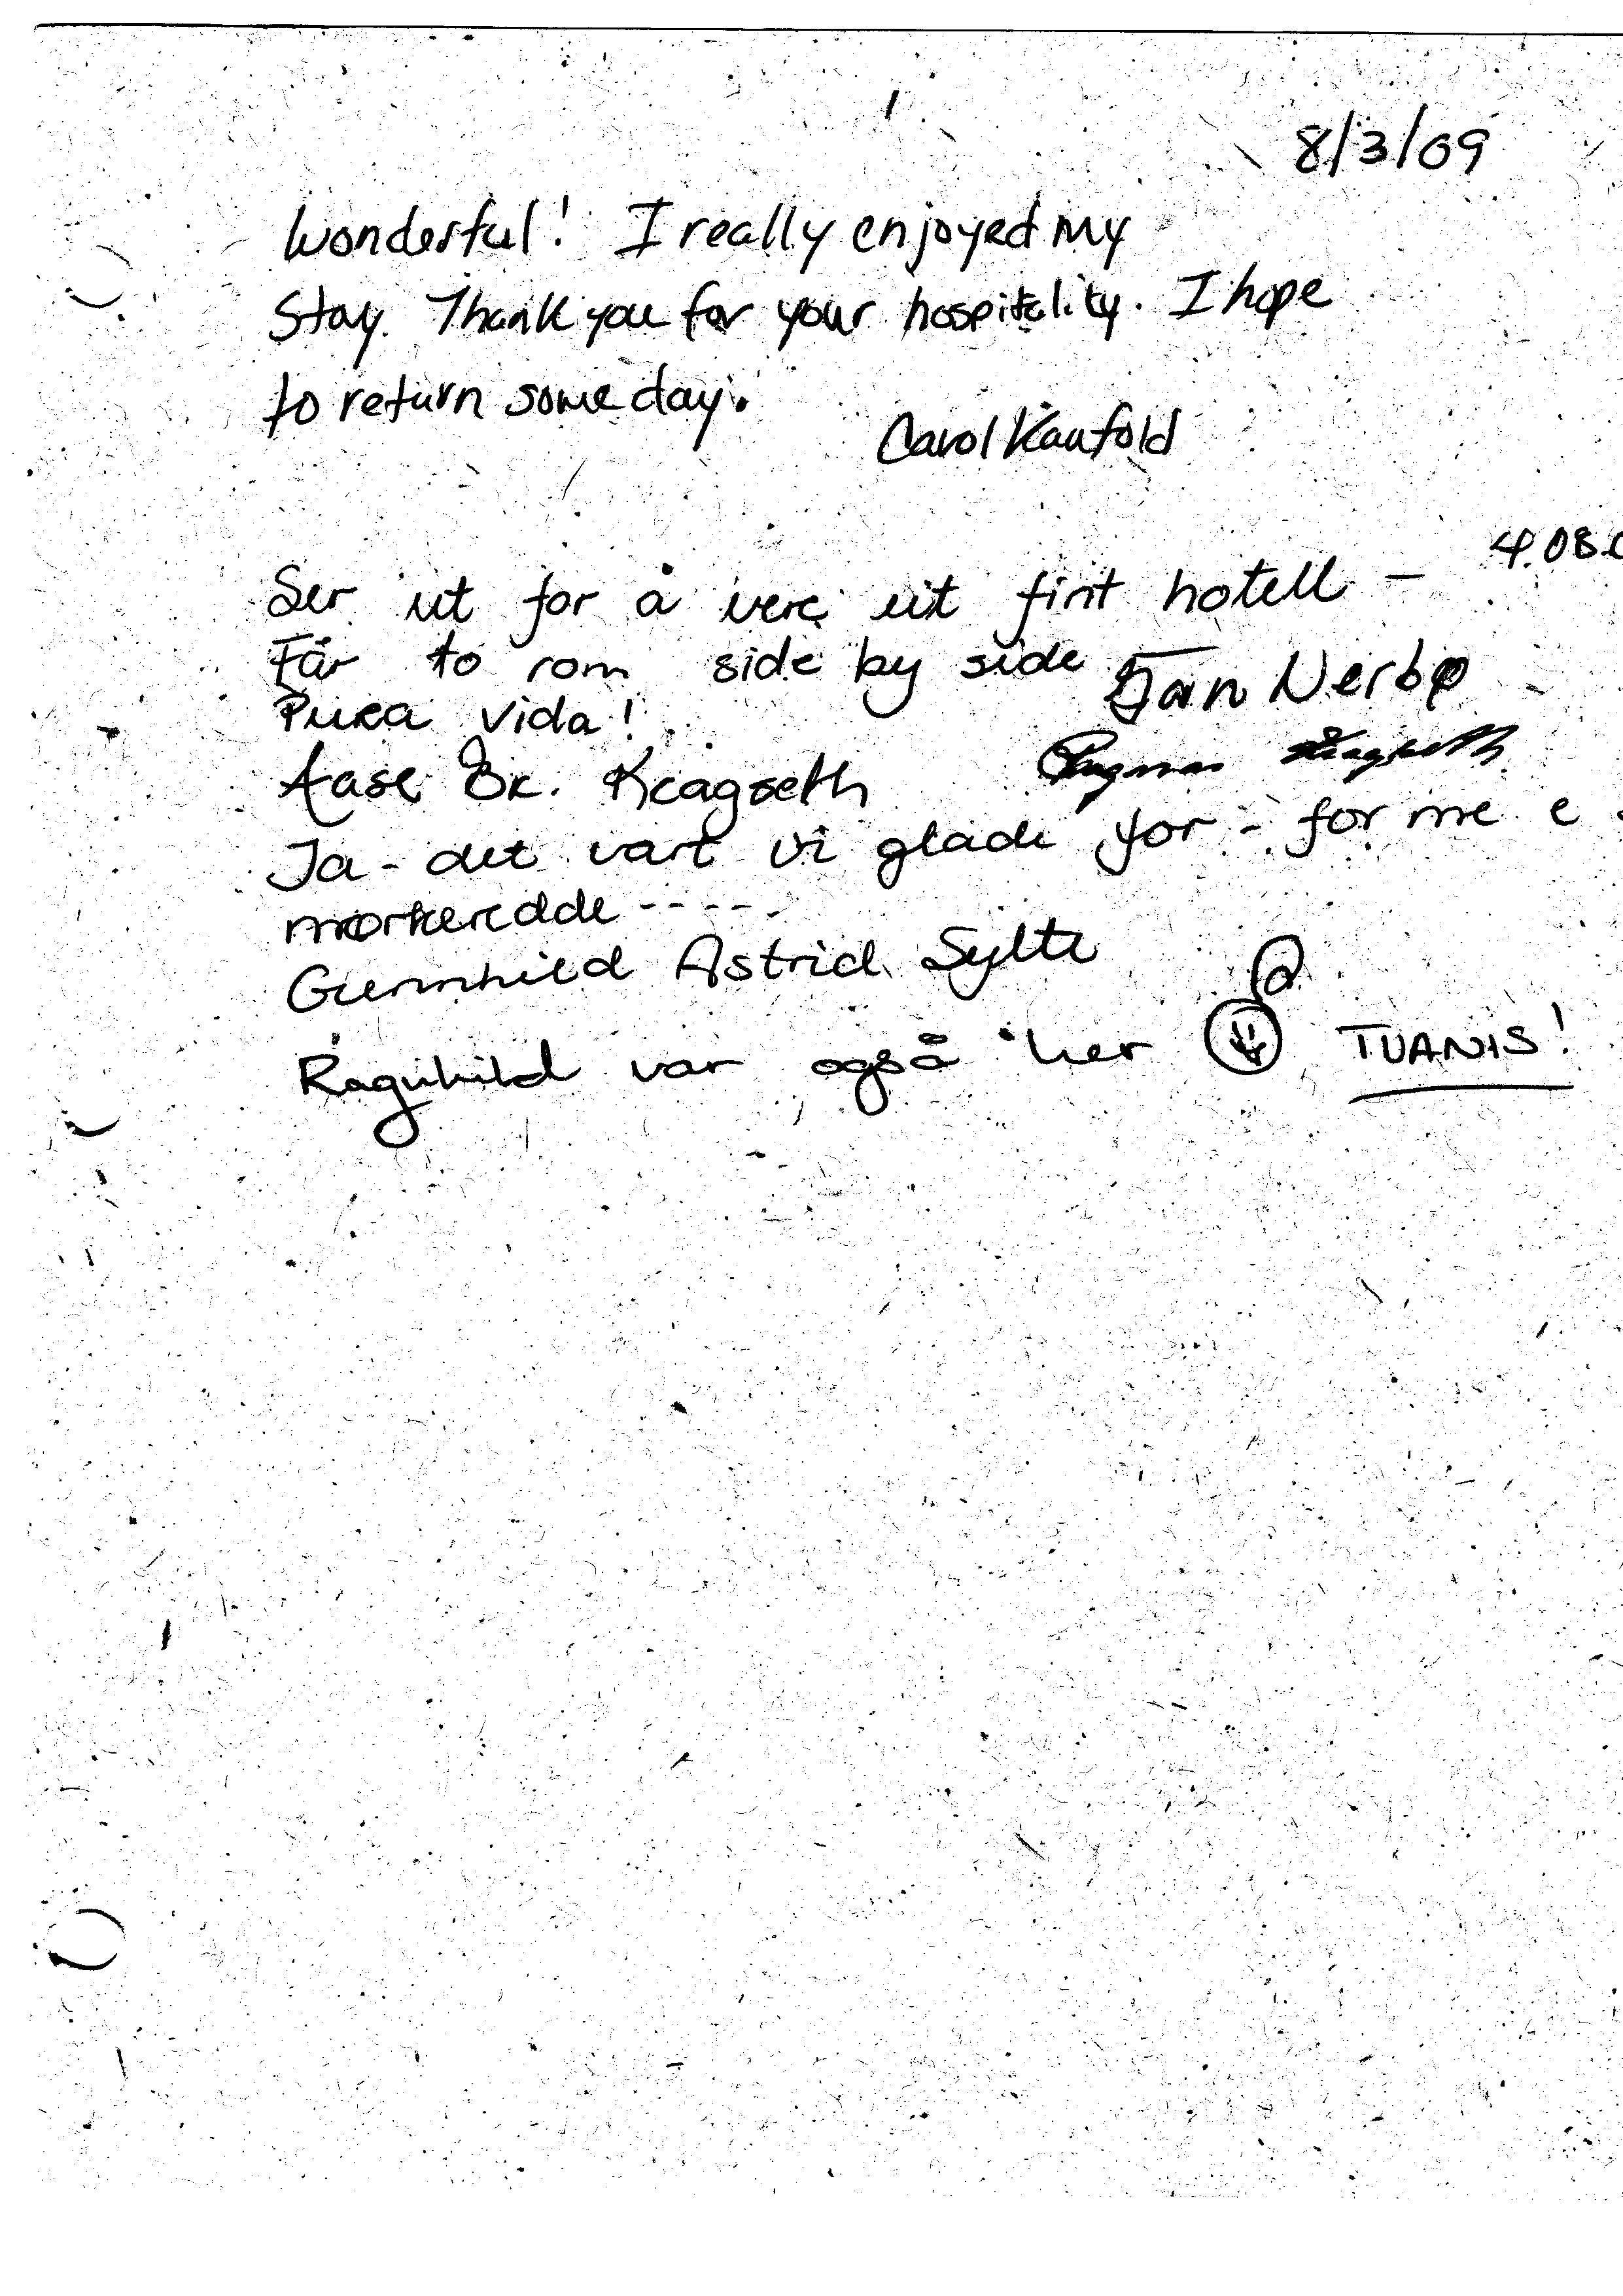 8/3/09
Wonderful! I really enjoyed my
Stay. Thank you for your hospitality. I hope
to return some day.
Carol Kaufold
4.08.
Ser ut for å vere eit fint hotell –
Får to rom side by side
Jan Nerbø
Pura vida!
Aase Br. Kragseth
Ja - det vart vi glade for - for me e
mørkeredde -----
Gunnhild Astrid Sylte
Ragnhild var også her TUANIS!